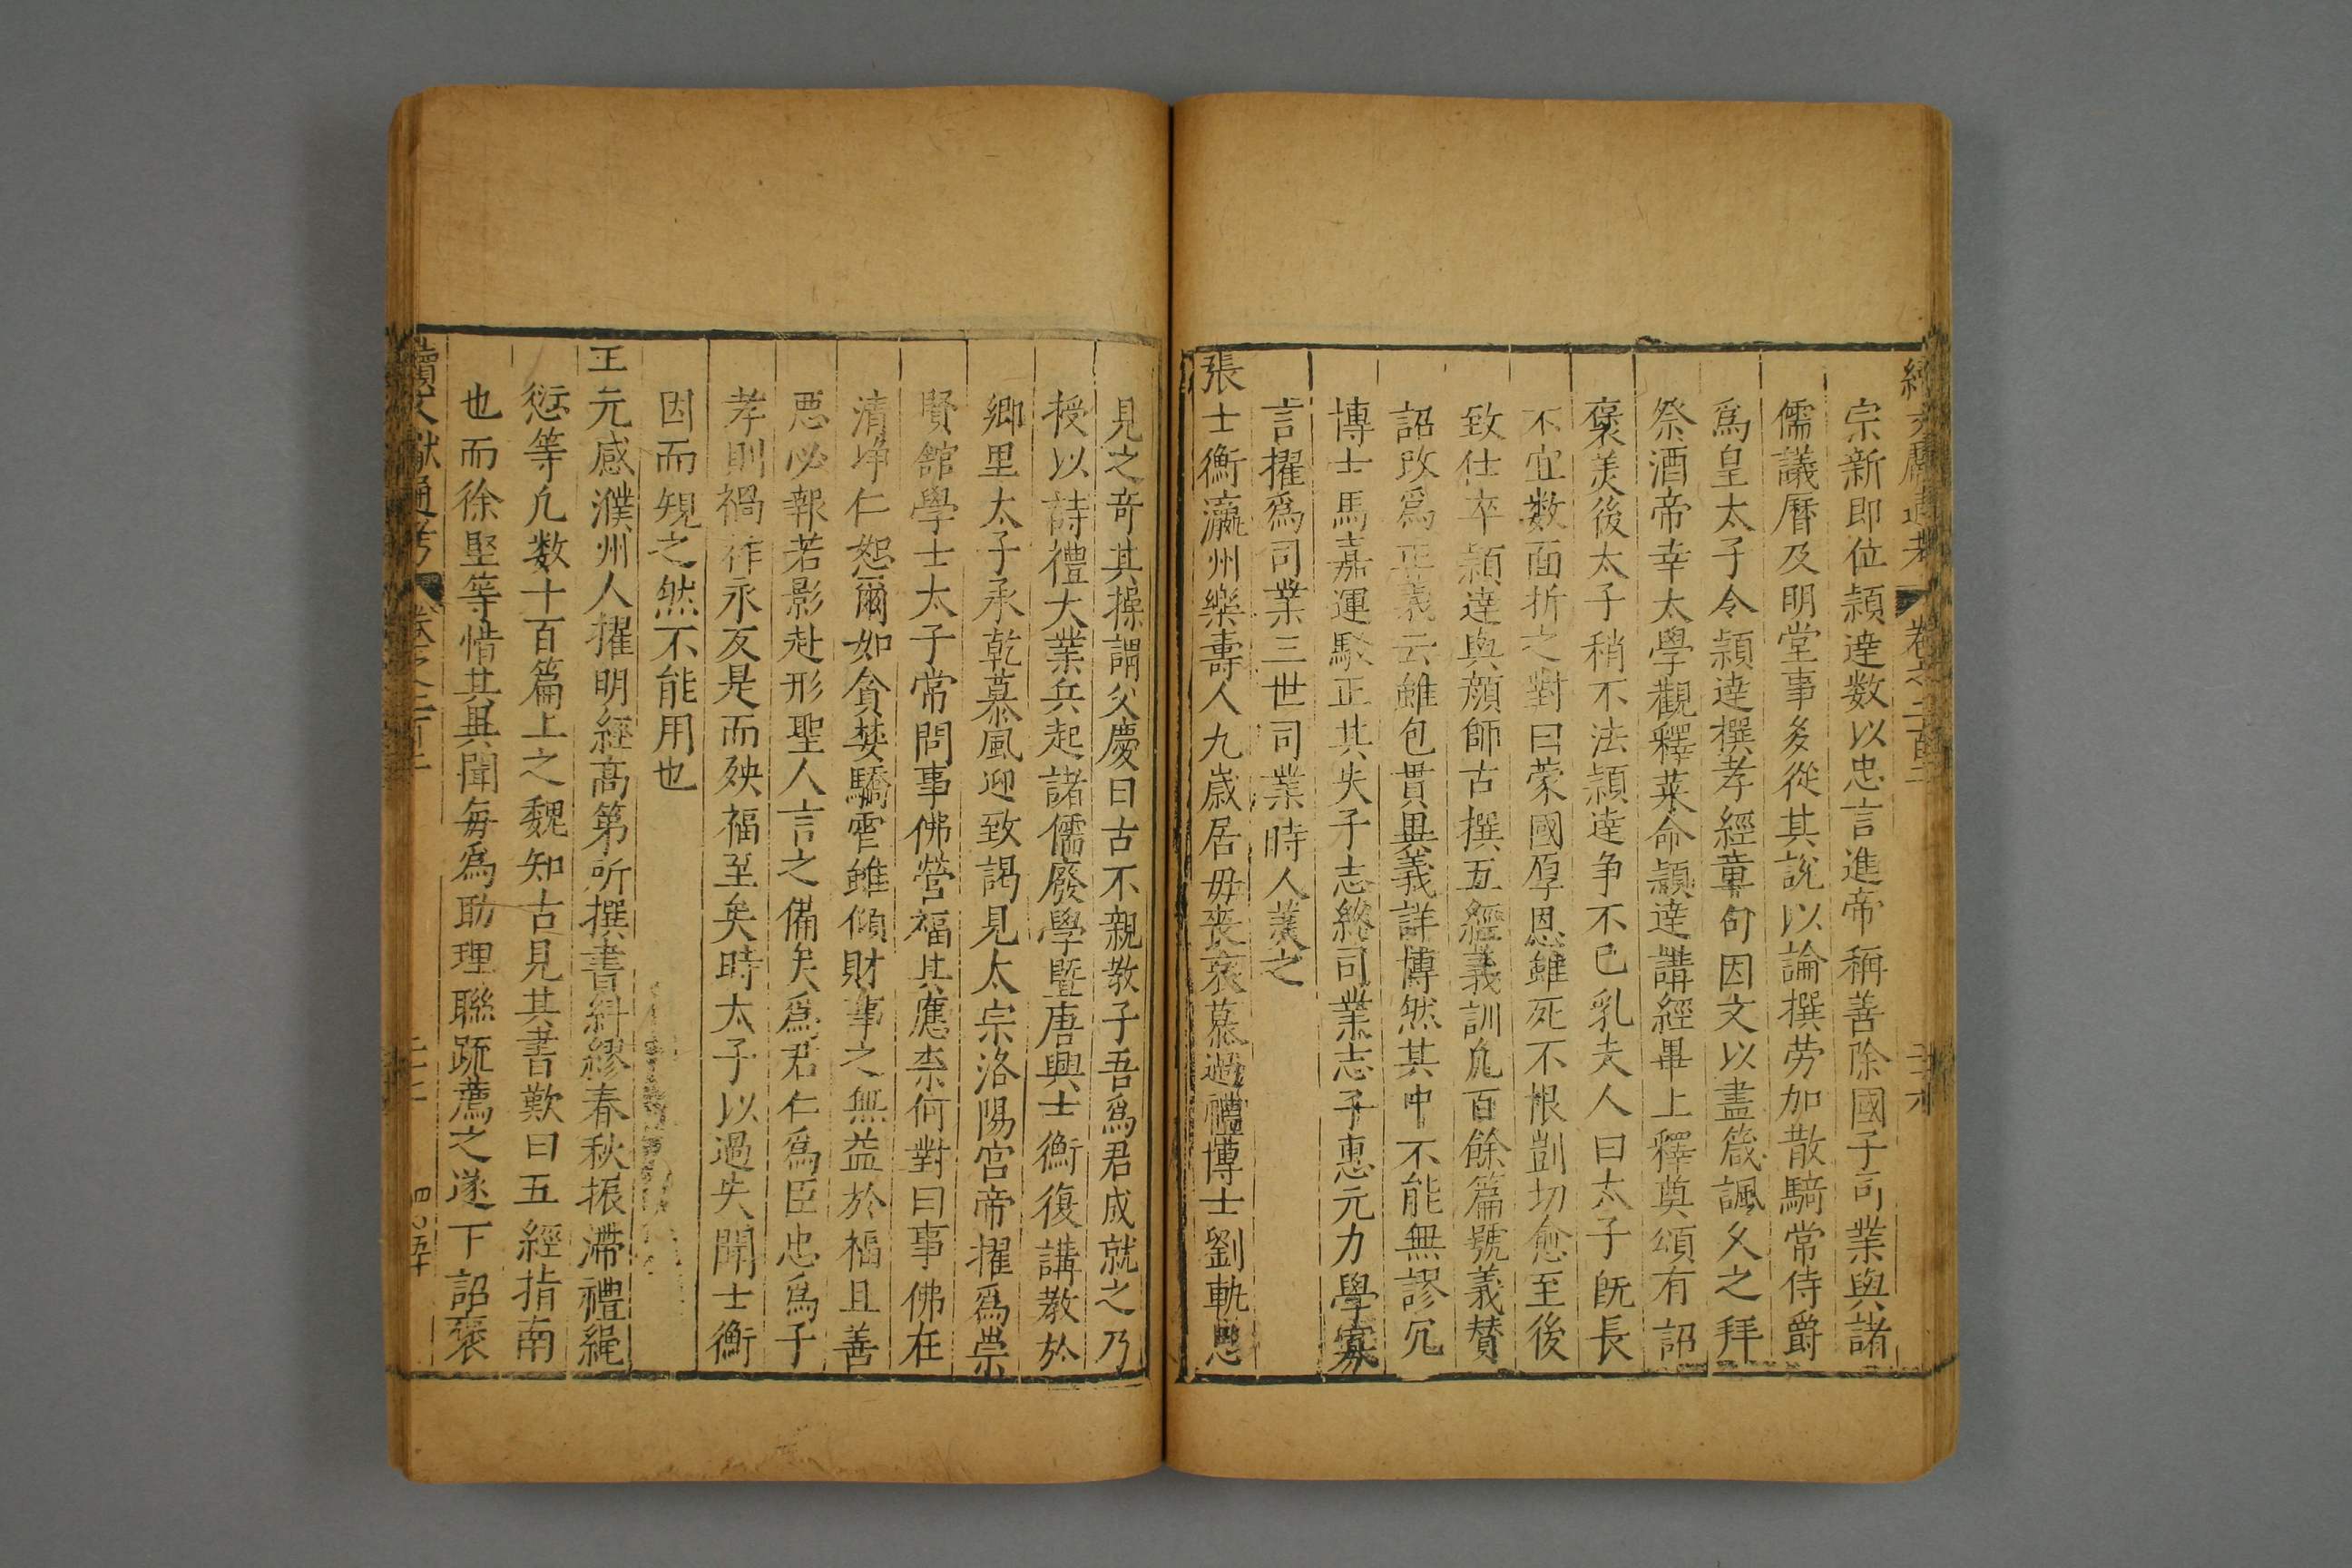 宗新即位頴達数以忠言進帝稱善除國子司業與諸
儒議曆及明堂事多從其說以論撰劳加散騎常侍爵
爲皇太子令頴達撰孝經章句因文以盡箴諷乆之拜
祭酒帝幸太學觀釋菜命頴達講經畢上釋奠頌有詔
褒美後太子稍不法頴達争不已乳夫人曰太子既長
不宜数面折之對曰蒙國厚恩雖死不恨剴切愈至後
致仕卒頴達與顔師古撰五經義訓凢百餘篇號義賛
詔改爲正義云雖包貫異義詳博然其中不能無謬冗
博士馬嘉運駁正其失子志終司業志子惠元力學寡
言擢爲司業三世司業時人羙之
張士衡瀛州樂壽人九歳居毋丧哀慕過禮博士劉軌思
見之竒其操謂父慶曰古不親教子吾爲君成就之乃
授以詩禮大業兵起諸儒廢學暨唐興士衡復講教於
鄉里太子承乾慕風迎致謁見太宗洛陽宫帝擢爲崇
賢館學士太子常問事佛營福其應柰何對曰事佛在
清净仁恕爾如貪婪驕雪雖傾財事之無益於福且善
悪必報若影赴形聖人言之備矣爲君仁爲臣忠爲子
孝則禍祚永反是而殃福至矣時太子以過失聞士衡
因而規之然不能用也
王元感濮州人擢明經髙第所撰書糾繆春秋振滯禮繩
愆等凢数十百篇上之魏知古見其書歎曰五經指南
也而徐堅等惜其異聞毎爲助理聯䟽薦之遂下詔褒
續文獻通考 卷之二百二